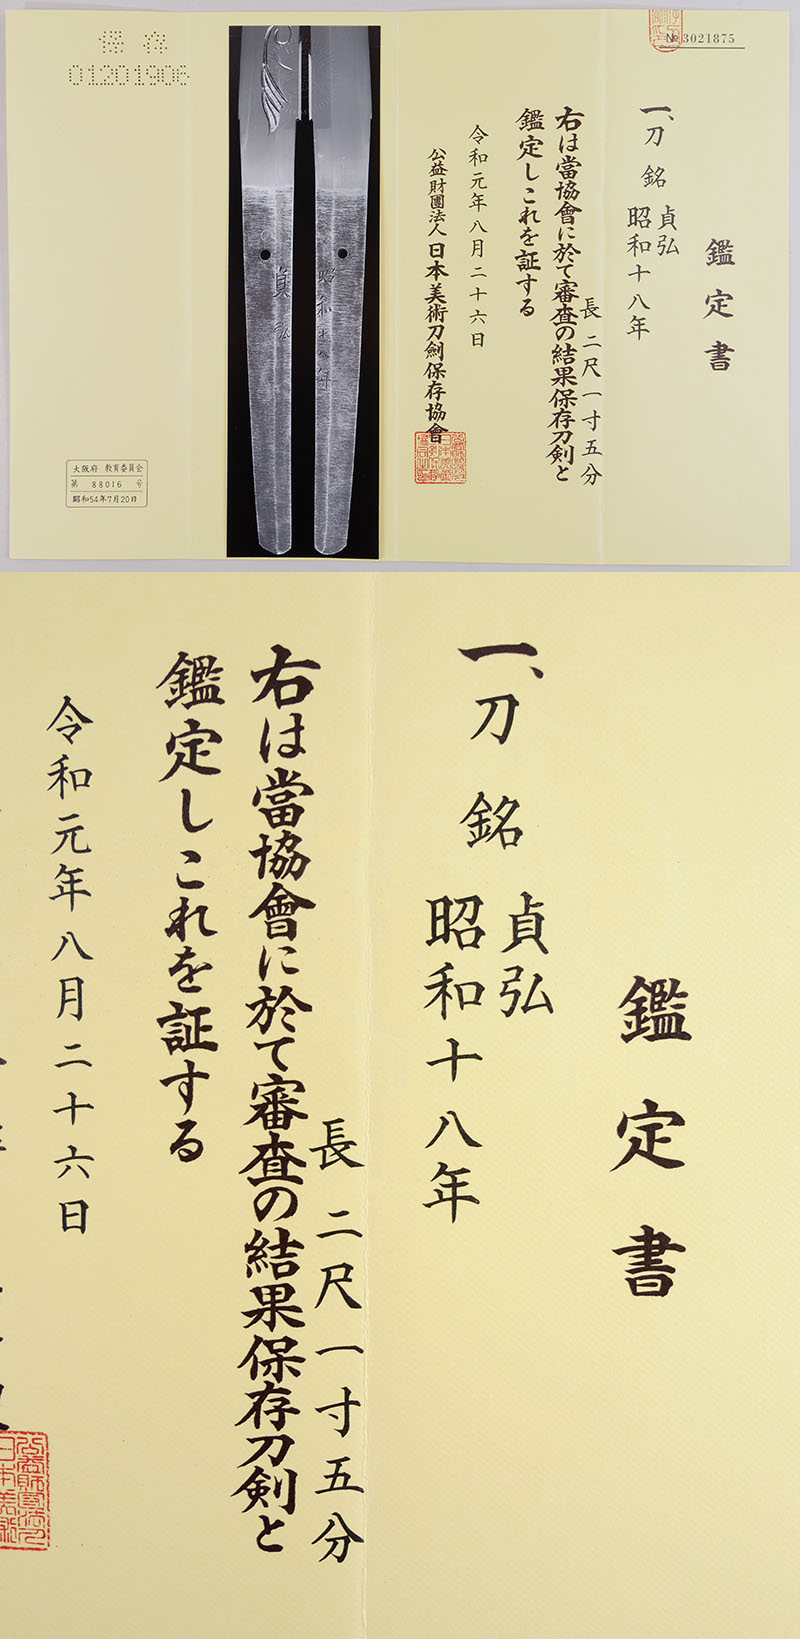 № 3021875
鑑定書
一、刀 銘 貞弘
昭和十八年
長 二尺一寸五分
右は當協會に於て審査の結果保存刀剣と
鑑定しこれを証する
令和元年八月二十六日
公益財團法人日本美術刀劍保存協會
貞弘
昭和十八年
保存
01201906
大阪府 教育委員会
第 88016 号
昭和54年7月20日
鑑定書
一、刀 銘 貞弘
昭和十八年
長 二尺一寸五分
右は當協會に於て審査の結果保存刀剣と
鑑定しこれを証する
令和元年八月二十六日